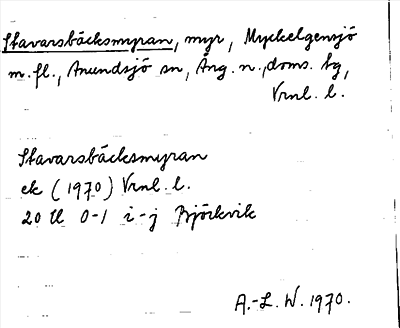 Stavarsbäcksmyran, myr, Myckelgensjö
m.fl., Anundsjö sn, Ång. n., doms. tg,
Vrnl. l.
Stavarsbäcksmyran
ek (1970) Vrnl. l.
20 H 0-1 i-j Björkvik
A.-L. W. 1970.